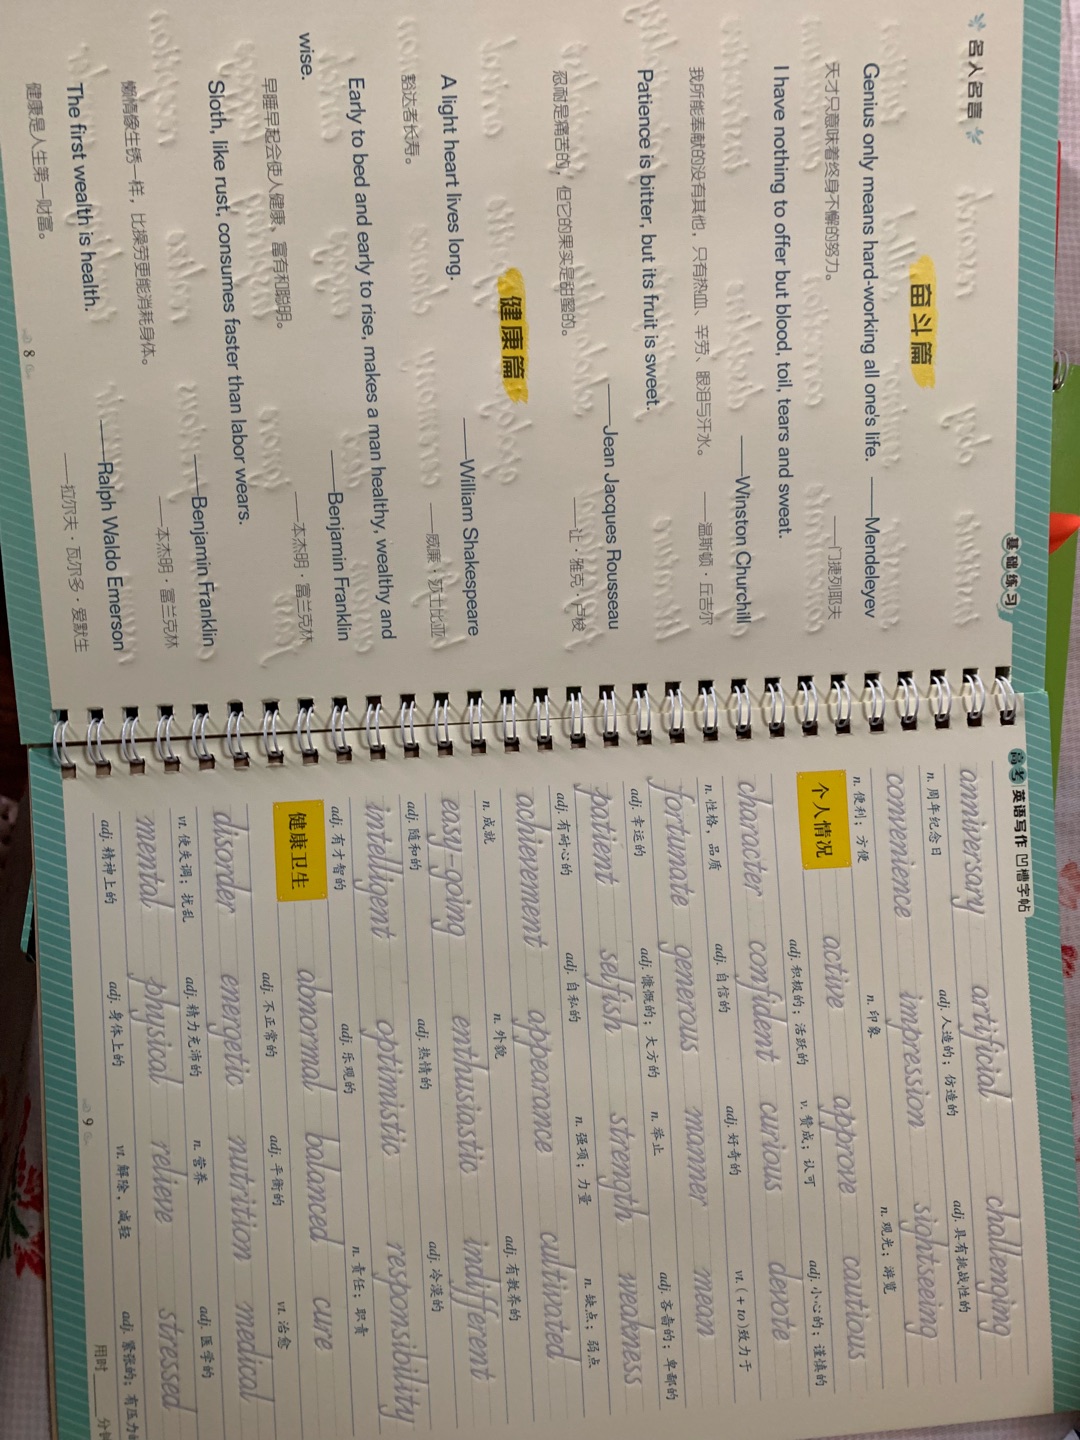 基础练习
名人名言
奋斗篇
Genius only means hard-working all one's life. ——Mendeleyev
天才只意味着终身不懈的努力。 ——门捷列耶夫
I have nothing to offer but blood, toil, tears and sweat.
——Winston Churchill
我所能奉献的没有其他，只有热血、辛劳、眼泪与汗水。 ——温斯顿·丘吉尔
Patience is bitter, but its fruit is sweet.
——Jean Jacques Rousseau
忍耐是痛苦的，但它的果实是甜蜜的。 ——让·雅克·卢梭
健康篇
A light heart lives long. ——William Shakespeare
豁达者长寿。 ——威廉·莎士比亚
Early to bed and early to rise, makes a man healthy, wealthy and
wise. ——Benjamin Franklin
早睡早起会使人健康、富有和聪明。 ——本杰明·富兰克林
Sloth, like rust, consumes faster than labor wears.
——Benjamin Franklin
懒惰像生锈一样，比操劳更能消耗身体。 ——本杰明·富兰克林
The first wealth is health. ——Ralph Waldo Emerson
健康是人生第一财富。 ——拉尔夫·瓦尔多·爱默生
8
高考 英语写作 凹槽字帖
anniversary artificial challenging
n. 周年纪念日 adj. 人造的；仿造的 adj. 具有挑战性的
convenience impression sightseeing
n. 便利；方便 n. 印象 n. 观光；游览
个人情况 active approve cautious
adj. 积极的；活跃的 v. 赞成；认可 adj. 小心的；谨慎的
character confident curious devote
n. 性格，品质 adj. 自信的 adj. 好奇的 vt. (+to)致力于
fortunate generous manner mean
adj. 幸运的 adj. 慷慨的；大方的 n. 举止 adj. 吝啬的；卑鄙的
patient selfish strength weakness
adj. 有耐心的 adj. 自私的 n. 强项；力量 n. 缺点；弱点
achievement appearance cultivated
n. 成就 n. 外貌 adj. 有教养的
easy-going enthusiastic indifferent
adj. 随和的 adj. 热情的 adj. 冷漠的
intelligent optimistic responsibility
adj. 有才智的 adj. 乐观的 n. 责任；职责
健康卫生 abnormal balanced cure
adj. 不正常的 adj. 平衡的 vt. 治愈
disorder energetic nutrition medical
vt. 使失调；扰乱 adj. 精力充沛的 n. 营养 adj. 医学的
mental physical relieve stressed
adj. 精神上的 adj. 身体上的 vt. 解除，减轻 adj. 紧张的；有压力的
9
用时____分钟